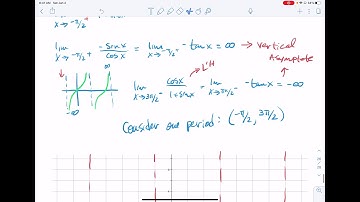 x→-π/2
lim x→-π/2+ -sinx/cosx = lim x→-π/2+ -tanx = ∞ → vertical Asymptote
L'H
∞
-∞
lim x→3π/2- cosx/1+sinx = lim x→3π/2- -tanx = -∞
Consider one period: (-π/2, 3π/2)